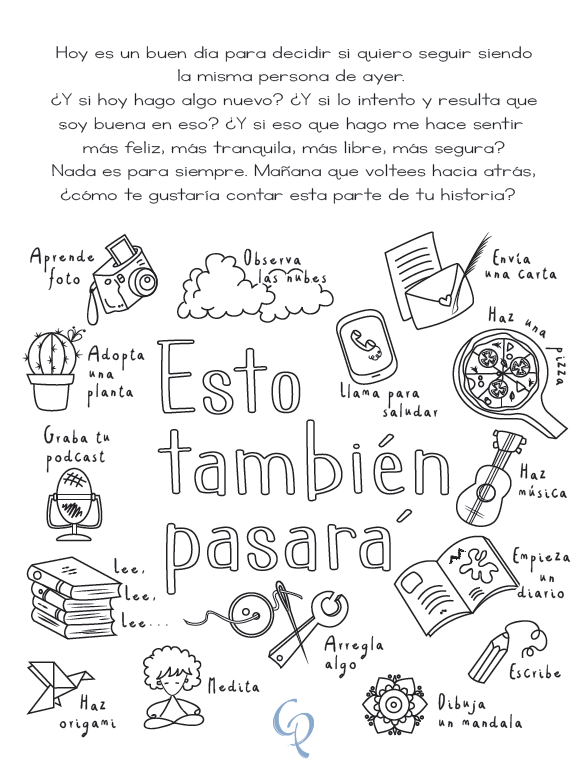 Hoy es un buen día para decidir si quiero seguir siendo
la misma persona de ayer.
¿Y si hoy hago algo nuevo? ¿Y si lo intento y resulta que
soy buena en eso? ¿Y si eso que hago me hace sentir
más feliz, más tranquila, más libre, más segura?
Nada es para siempre. Mañana que voltees hacia atrás,
¿cómo te gustaría contar esta parte de tu historia?
Aprende
foto
Observa
las nubes
Envía
una carta
Adopta
una
planta
Llama para
saludar
Haz una
pizza
Esto
también
pasará
Graba tu
podcast
Haz
música
Lee,
Lee,
Lee...
Empieza
un
diario
Arregla
algo
Escribe
Haz
origami
Medita
Dibuja
un mandala